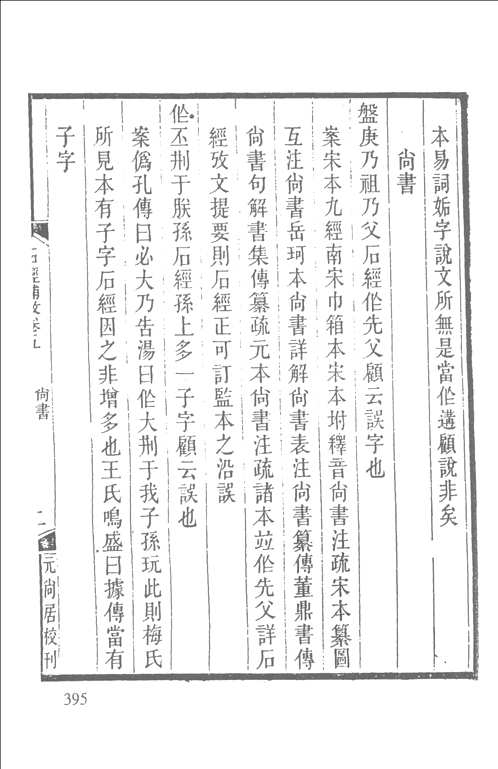 本易詞姤字說文所無是當作遘顧說非矣
尙書
盤庚乃祖乃父石經作先父顧云誤字也
案宋本九經南宋巾箱本宋本坿釋音尙書注疏宋本纂圖
互注尙書岳珂本尙書詳解尙書表注尙書纂傳董鼎書傳
尙書句解書集傳纂疏元本尙書注疏諸本竝作先父詳石
經攷文提要則石經正可訂監本之沿誤
作丕刑于朕孫石經孫上多一子字顧云誤也
案僞孔傳曰必大乃告湯曰作大刑于我子孫玩此則梅氏
所見本有子字石經因之非增多也王氏鳴盛曰據傳當有
子字
石經補攷卷五
尙書
元尙居校刊
395